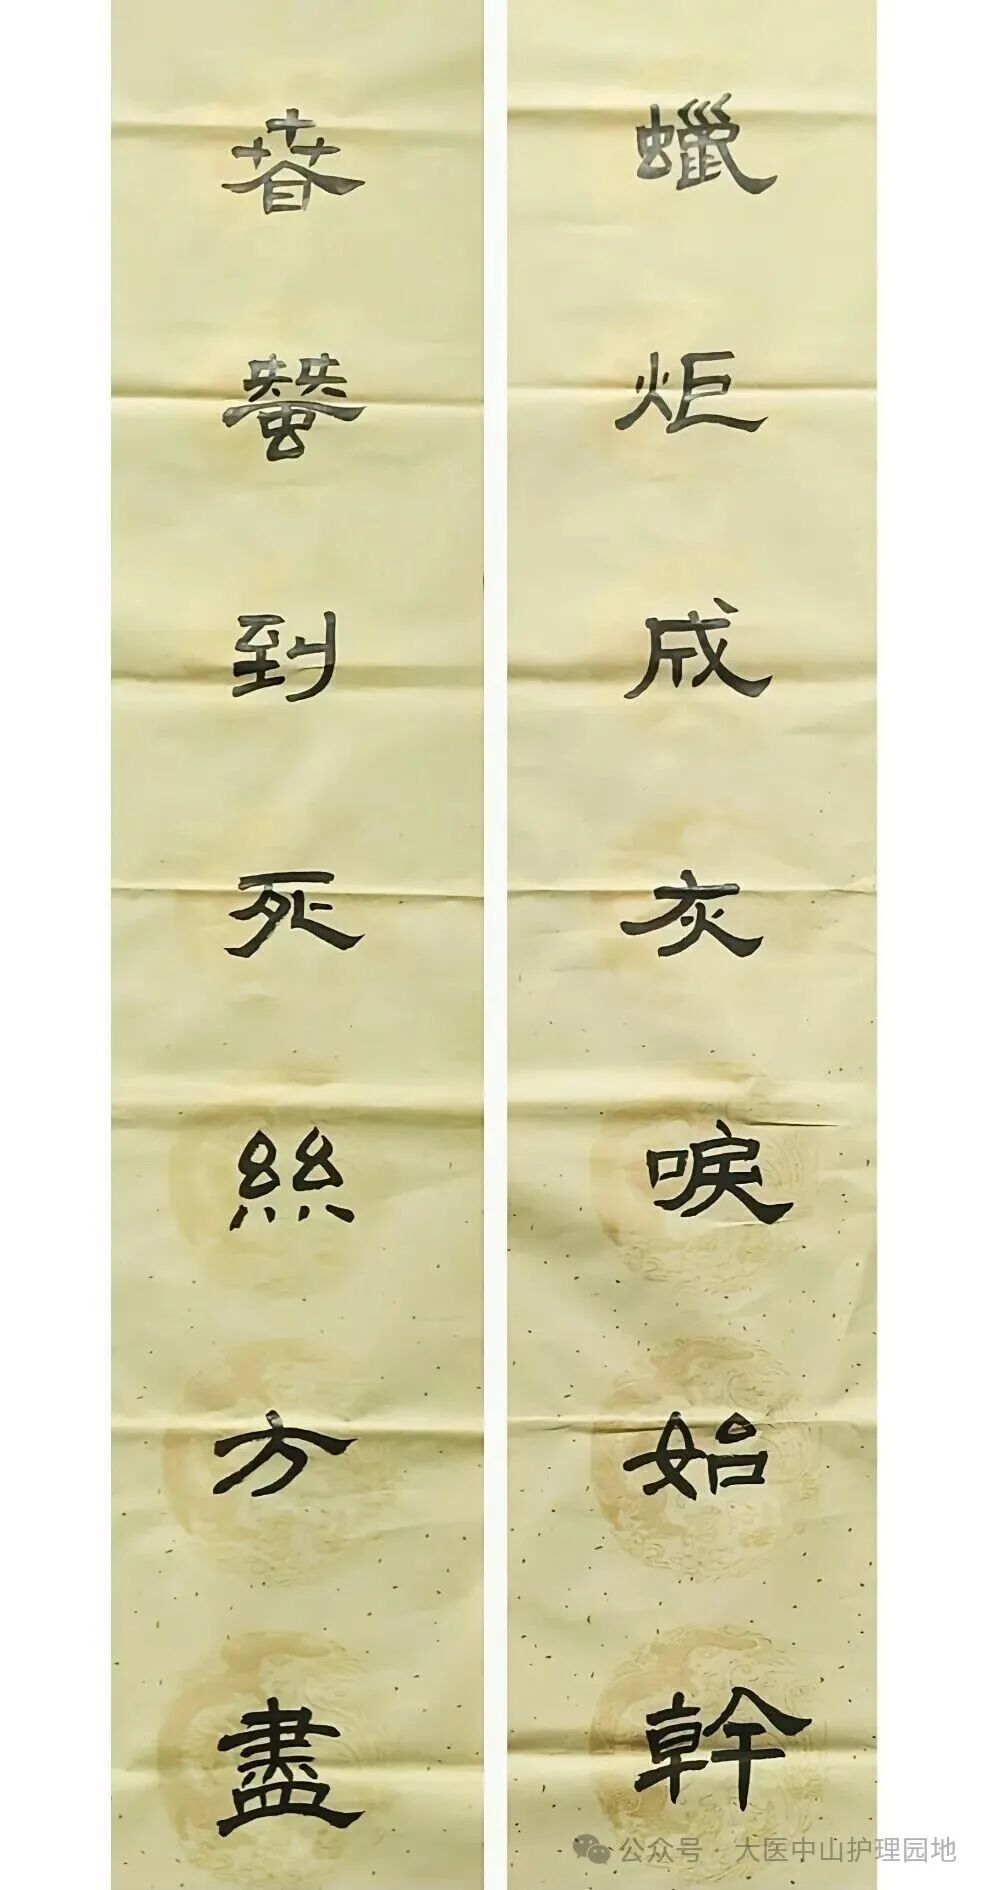 春蠶到死絲方盡
蠟炬成灰唳始幹
公众号 · 大医中山护理园地